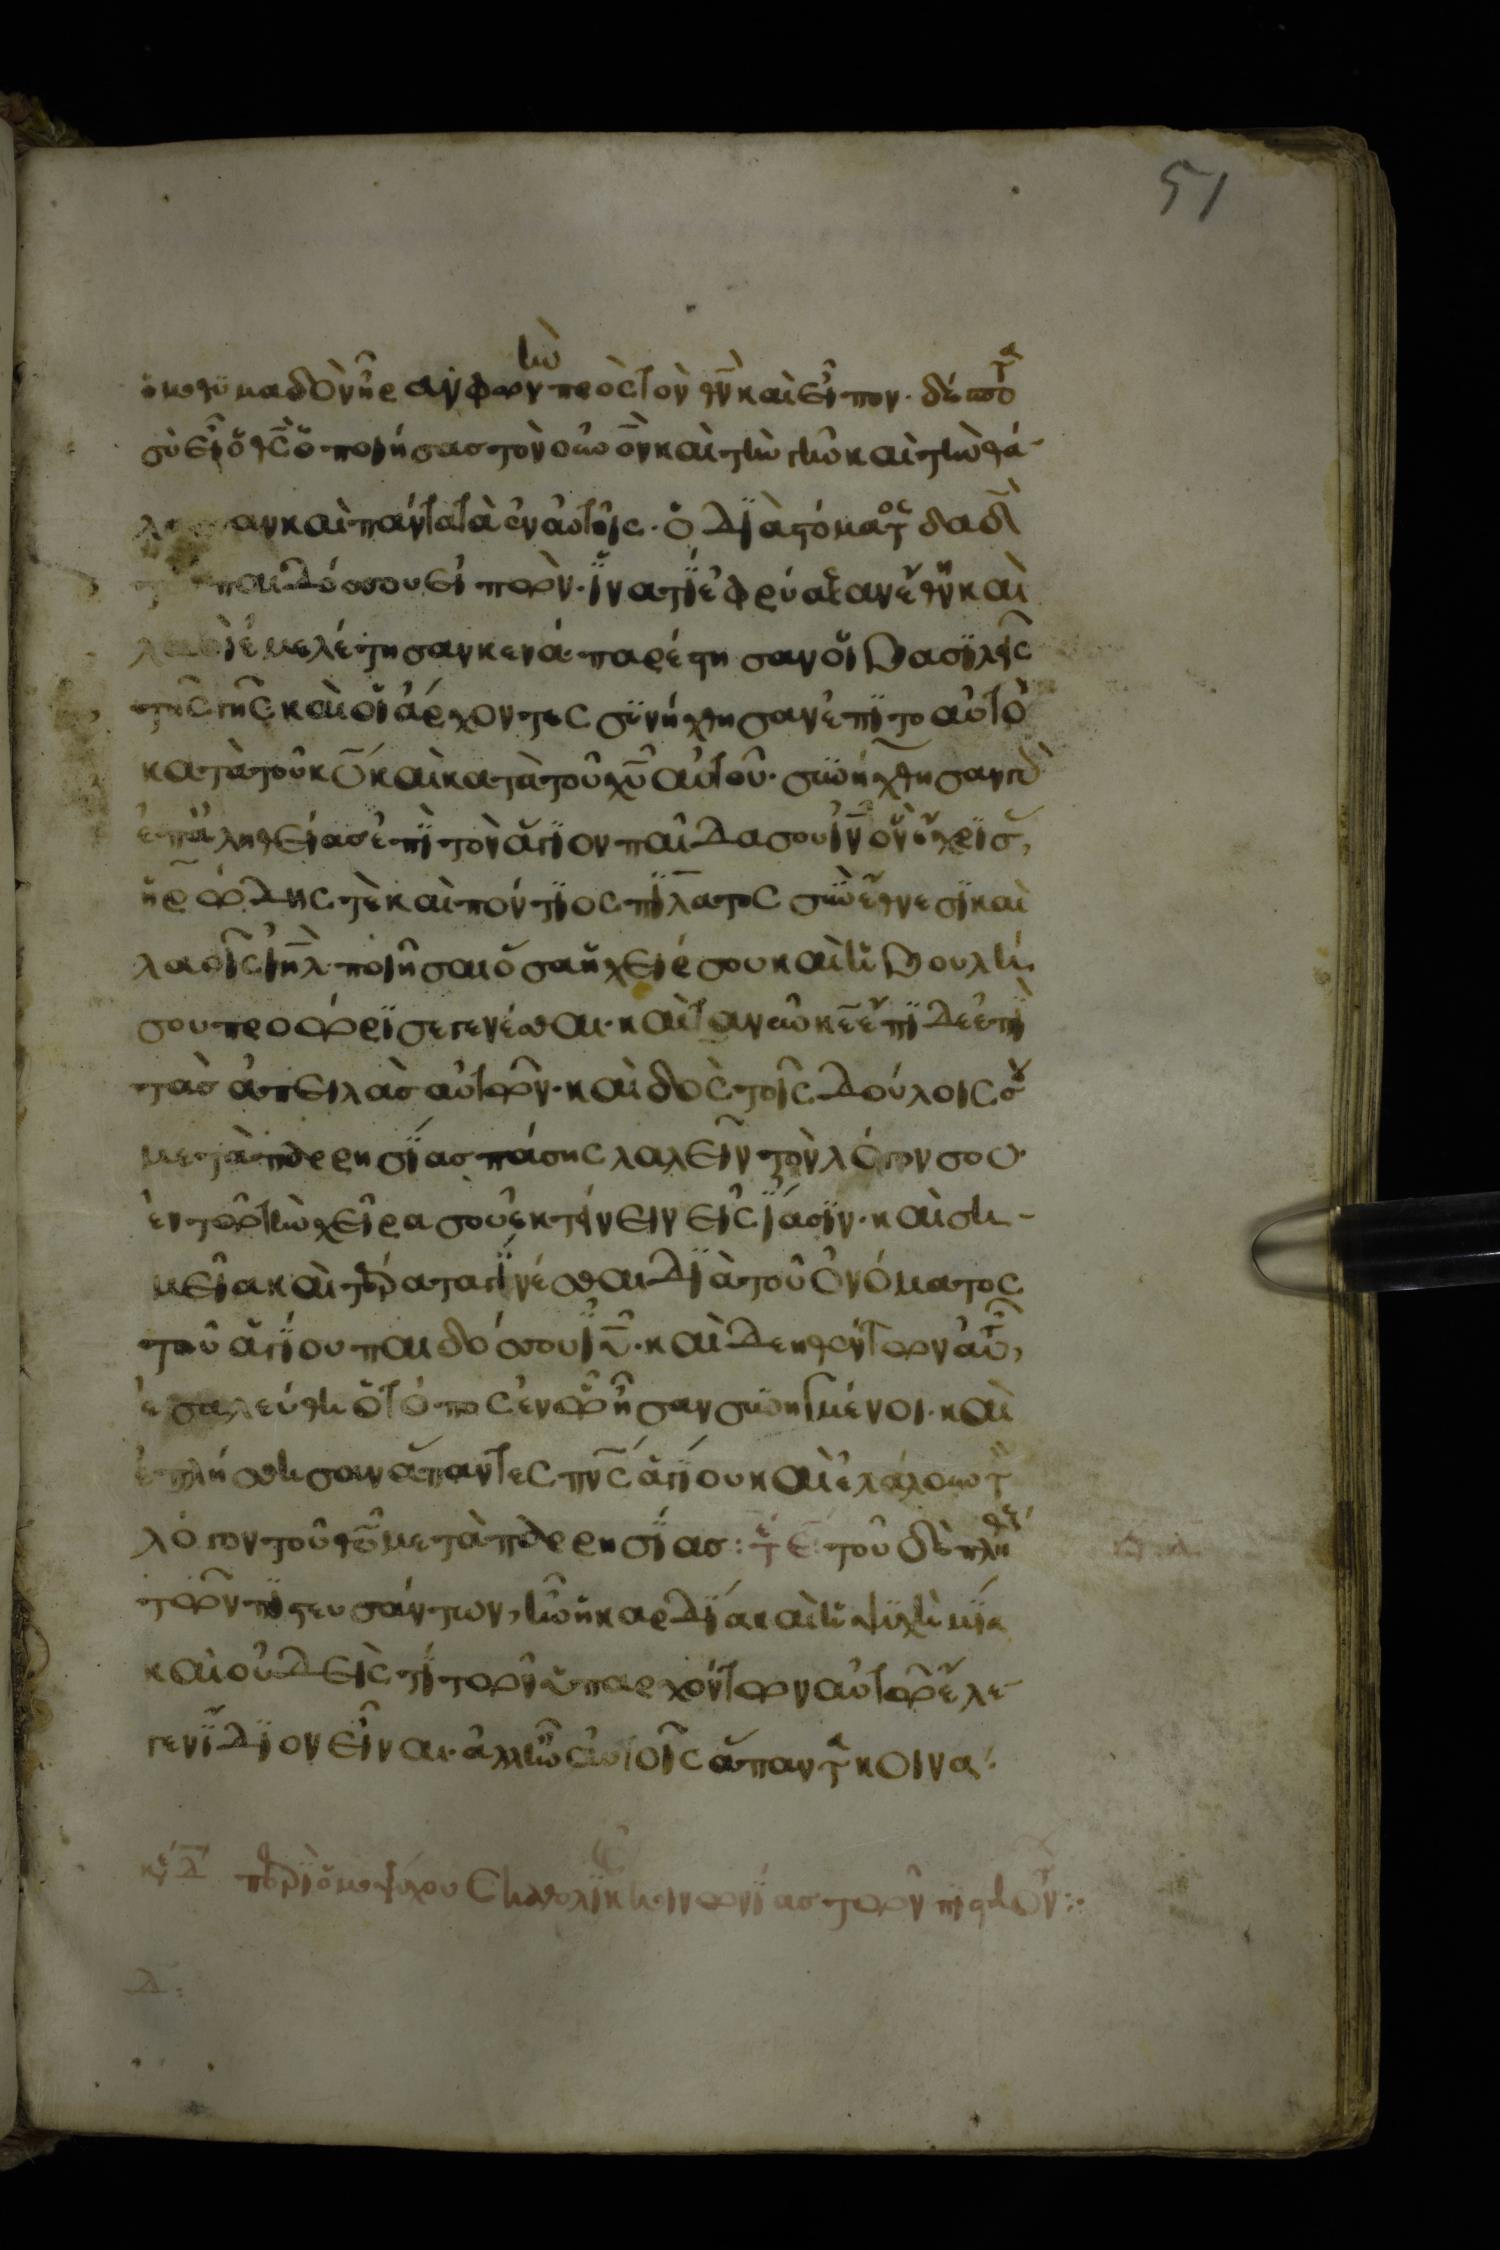 51
ὁμοθυμαδὸν ἦραν φωνὴν πρὸς τὸν θν̄ καὶ εἶπον· δέσποτα
σὺ εἶ ὁ θς̄ ὁ ποιήσας τὸν οὐνον καὶ τὴν γῆν καὶ τὴν θά-
ανκαὶ πάντα τὰ ἐν αὐτοῖς· ὁ διὰ στόματος δαδ̄
παιδός σου εἰπών· ἵνα τί ἐφρύαξαν ἔθνη καὶ
λαοὶ ἐμελέτησαν κενά· παρέστησαν οἱ βασιλεῖς
τῆς γῆς καὶ οἱ ἄρχοντες συνήχθησαν ἐπὶ το αὐτὸ
κατὰ τοῦ κῡ καὶ κατὰ τοῦ χῡ αὐτοῦ· συνήχθησαν γὰρ
ἐπ' ἀληθείας ἐπὶ τὸν ἅγιον παῖδα σου ιν̄ ὃν ἔχρισας,
ἡρώδης τὲ καὶ πόντιος πιλᾶτος σὺν ἔθνεσι καὶ
λαοῖς ιηλ̄ ποιῆσαι ὅσα ἡ χείρ σου καὶ ἡ βουλή
σου προώρισε γενέσθαι· καὶ τανῦν κε̄ ἔπιδε ἐπὶ
τὰς ἀπειλὰς αὐτῶν· καὶ δὸς τοῖς δούλοις σου
μετὰ παρρησίας πάσης λαλεῖν τὸν λόγον σου·
ἐν τῶ τὴν χεῖρα σου ἐκτείνειν εἰς ἴασιν· καὶ ση-
μεῖα καὶ τέρατα γίνεσθαι διὰ τοῦ ὀνόματος
τοῦ ἁγίου παιδός σου ιῡ· καὶ δεηθέντων αὐτῶν,
ἐσαλεύθη ὁ τόπος ἐν ὧ ἦσαν συνηγμένοι· καὶ
ἐπλήσθησαν ἅπαντες πνς̄ ἁγίου καὶ ἐλάλουν τὸν
λόγον τοῦ θῡ μετὰ παρρησίας: τε τοῦ δὲ πλήθους
τῶν πιστευσάντων, ἦν ἡ καρδία καὶ ἡ ψυχὴ μία
καὶ οὐδεὶς τὶ τῶν ὑπαρχόντων αὐτῶ ἔλε-
γεν ἴδιον εἶναι· ἀλλ' ἦν αὐτοῖς ἅπαντα κοινα:
κε δ̄ περὶ ὁμοψύχου καὶ καθολικῆς κοινωνίας τῶν πιστῶν:·